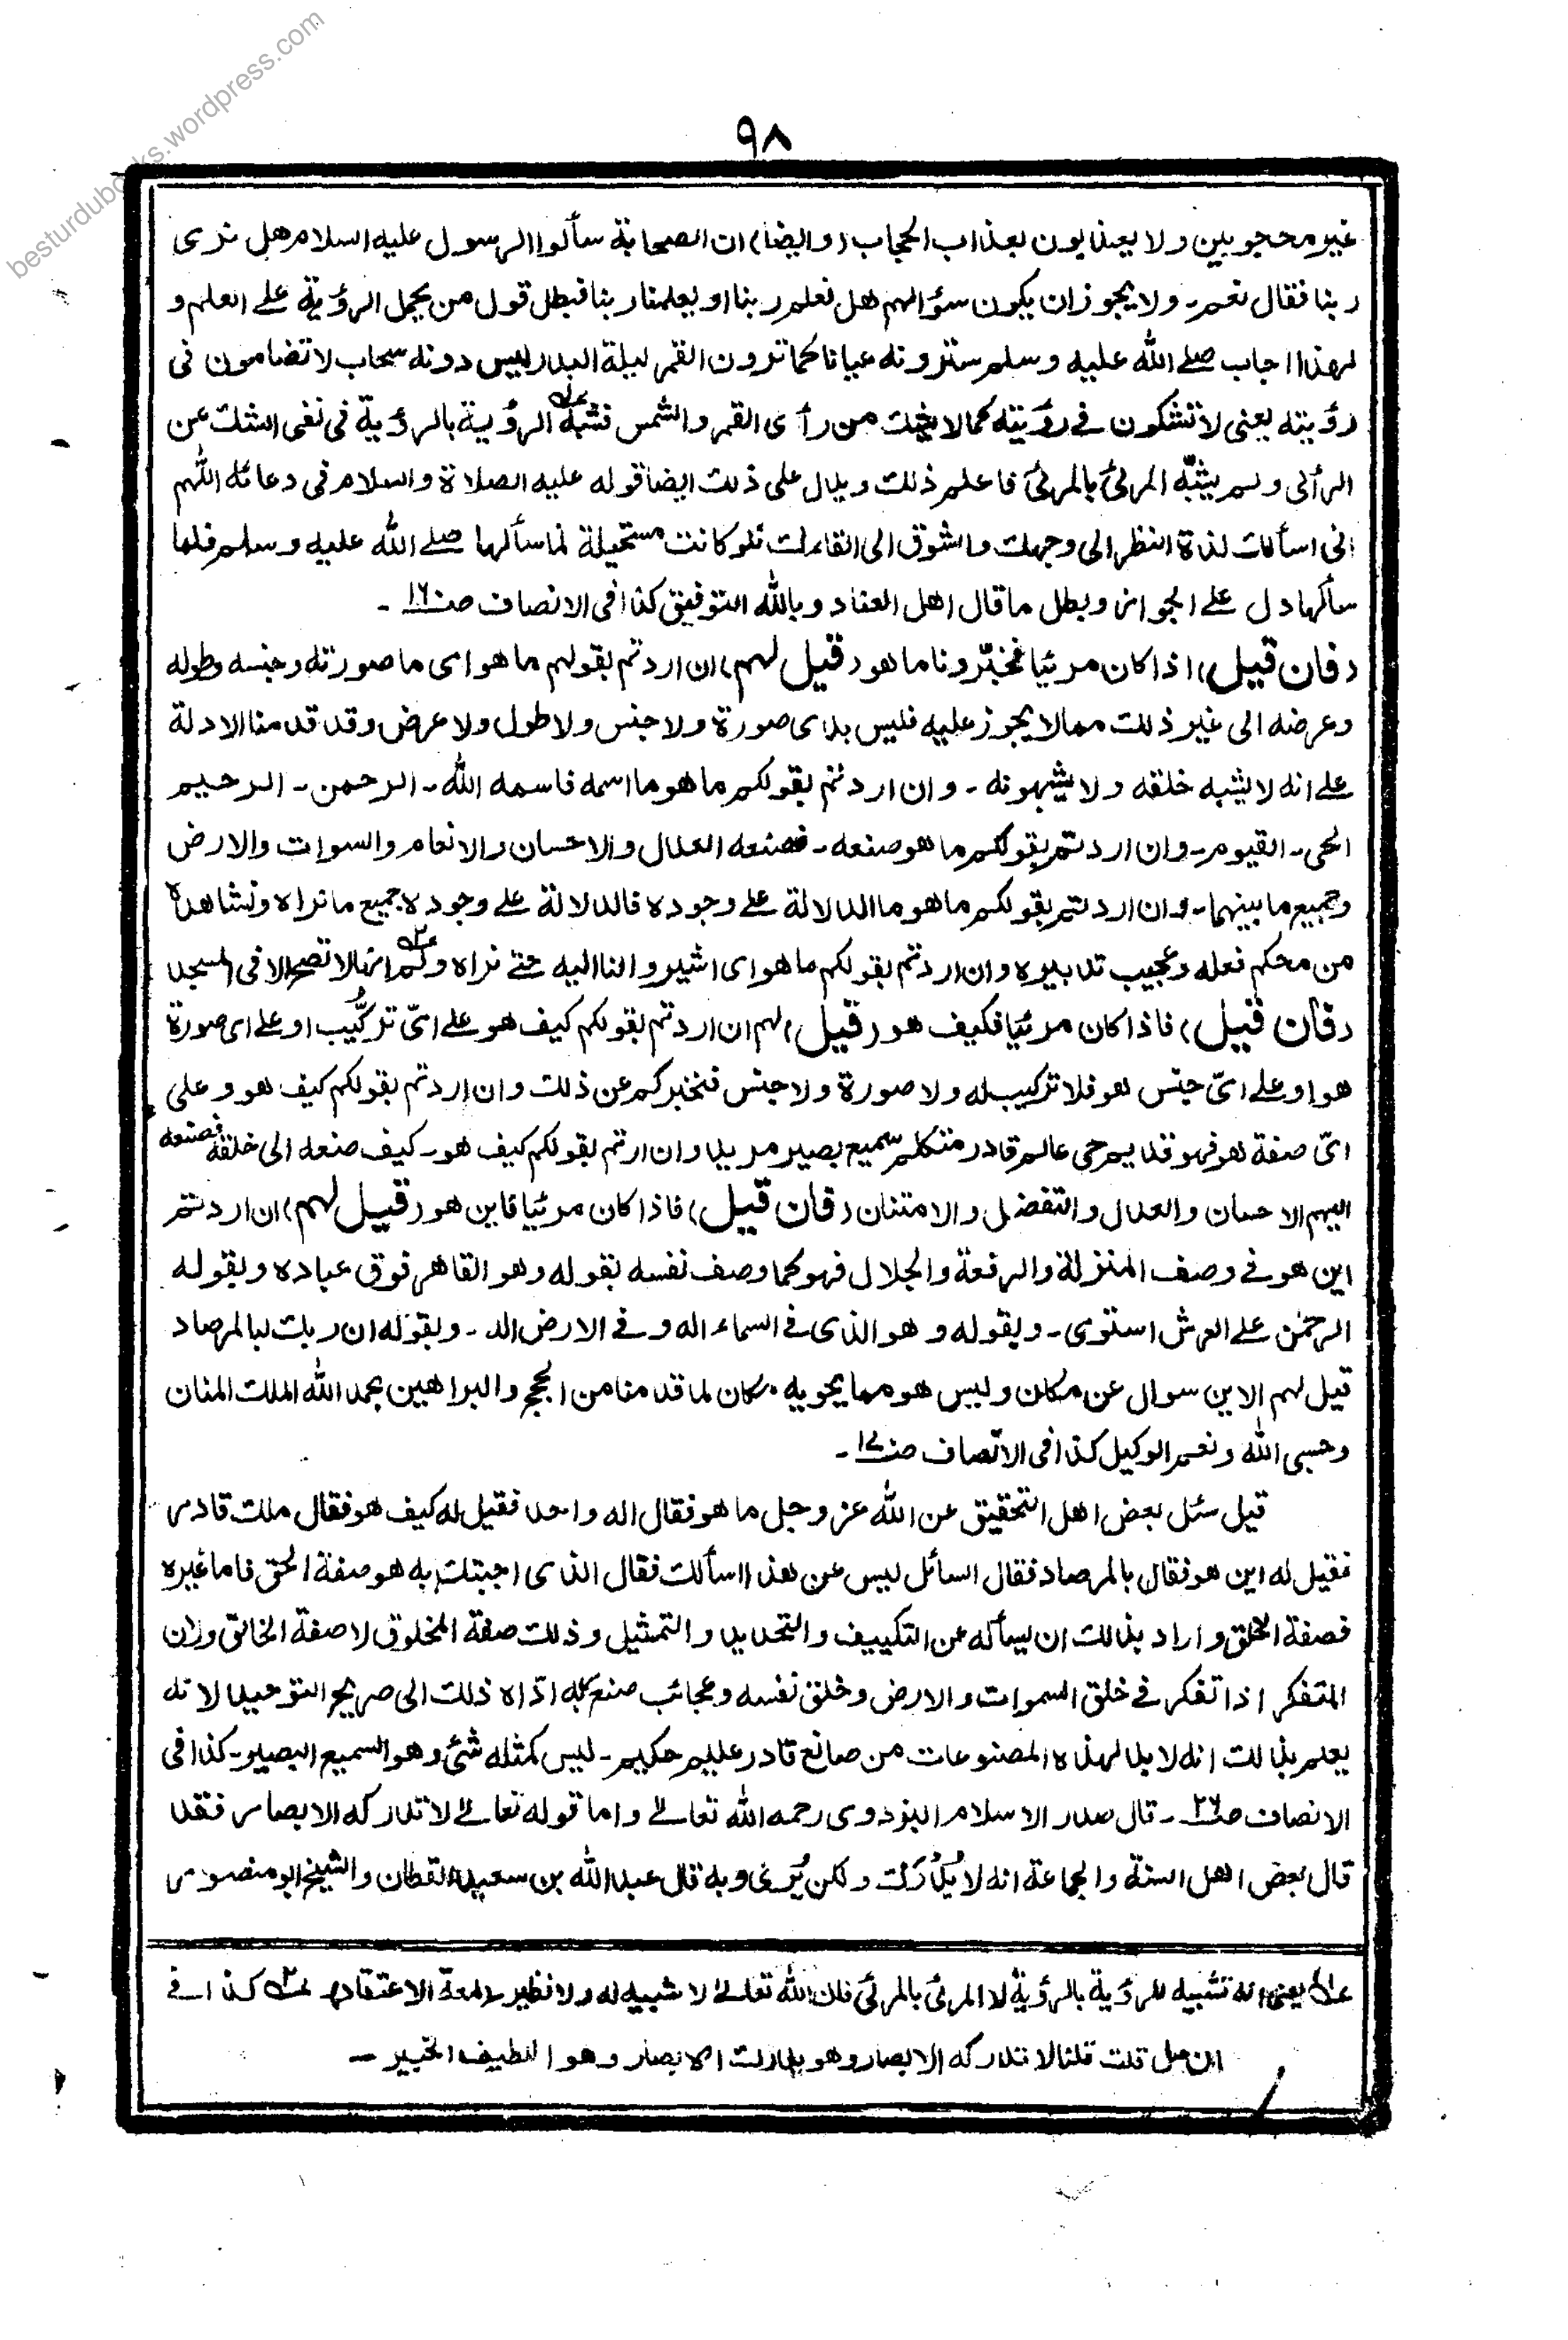 besturdubooks.wordpress.com
٩٨
غير محجوبين ولا يعذبون بعذاب الحجاب (وايضا) ان الصحابة سألوا الرسول عليه السلام هل نرى
ربنا فقال نعم۔ ولا يجوز ان يكون سؤالهم هل نعلم ربنا او يعلمنا ربنا فبطل قول من يحمل الرؤية على العلم و
لهذا اجاب صلے الله عليه وسلم سترونه عيانا كما ترون القمر ليلة البدر ليس دونه سحاب لا تضامون فى
رؤيته يعنى لا تشكون فے رؤيته كما لا يشك من رأى القمر والشمس فشبه الرؤية بالرؤية فى نفى الشك عن
الرأئى ولم يشبّه المرئىّ بالمرئىّ فاعلم ذلك ويدل على ذلك ايضا قوله عليه الصلاة والسلام فى دعائه اللهم
انى اسألك لذة النظر الى وجهك والشوق الى لقاءك فلو كانت مستحيلة لما سألها صلے الله عليه وسلم فلما
سألها دل علے الجواز وبطل ما قال اهل العناد وبالله التوفيق كذا فى الانصاف ص١٦۰ ۔
(فان قيل) اذا كان مرئيا فخبّرونا ما هو (قيل لهم) ان اردتم بقولهم ما هو اى ما صورته وجنسه وطوله
وعرضه الى غير ذلك مما لا يجوز عليه فليس بذى صورة ولا جنس ولا طول ولا عرض وقد قدمنا الادلة
علے انه لا يشبه خلقه ولا يشبهونه ۔ وان اردتم بقولكم ما هو ما اسمه فاسمه الله ۔ الرحمن ۔ الرحيم
الحى ۔ القيوم ۔ وان اردتم بقولكم ما هو صنعه ۔ فصنعه العدل والاحسان والانعام والسموات والارض
وجميع ما بينهما ۔ وان اردتم بقولكم ما هو ما الدلالة علے وجوده فالدلالة علے وجوده جميع ما نراه ونشاهده
من محكم فعله وعجيب تدبيره وان اردتم بقولكم ما هو اى اشيروا لنا اليه حتے نراه
(فان قيل) فاذا كان مرئيا فكيف هو (قيل) لهم ان اردتم بقولكم كيف هو علے اىّ تركيب او علے اى صورة
هو او علے اىّ جنس هو فلا تركيب له ولا صورة ولا جنس فنخبركم عن ذلك وان اردتم بقولكم كيف هو وعلى
اىّ صفة هو فهو قديم حى عالم قادر متكلم سميع بصير مريد وان ارتم بقولكم كيف هو ۔ كيف صنعه الى خلقه فصنعه
اليهم الاحسان والعدل والتفضل والامتنان (فان قيل) فاذا كان مرئيا فاين هو (قيل لهم) ان اردتم
اين هو فے وصف المنزلة والرفعة والجلال فهو كما وصف نفسه بقوله وهو القاهر فوق عباده وبقوله
الرحمٰن علے العرش استوى ۔ وبقوله وهو الذى فے السماء اله وفے الارض اله ۔ وبقوله ان ربك لبالمرصاد
قيل لهم الاين سوال عن مكان وليس هو مما يحويه مكان لما قدمنا من الحجج والبراهين بحمد الله الملك المنان
وحسبى الله ونعم الوكيل كذا فى الانصاف ۔
قيل سئل بعض اهل التحقيق عن الله عز وجل ما هو فقال اله واحد فقيل له كيف هو فقال ملك قادر
فقيل له اين هو فقال بالمرصاد فقال السائل ليس عن هذا اسألك فقال الذى اجبتك به هو صفة الحق فاما غيره
فصفة الخلق واراد بذالك ان يسأله عن التكييف والتحديد والتمثيل وذلك صفة المخلوق لا صفة الخالق ولان
المتفكر اذا تفكر فے خلق السموات والارض وخلق نفسه وعجائب صنع ربه ادّاه ذلك الى صريح التوحيد لانه
يعلم بذالك انه لا بد لهذه المصنوعات من صانع قادر عليم حكيم ۔ ليس كمثله شئ وهو السميع البصير ۔ كذا فى
الانصاف ص٢٦ ۔ قال صدر الاسلام البزدوى رحمه الله تعالے واما قوله تعالے لا تدركه الابصار فقد
قال بعض اهل السنة والجماعة انه لا يُدْرَك ولكن يُرىٰ وبه قال عبد الله بن سعيد القطان والشيخ ابو منصور
عـ١ يعنى انه تشبيه للرؤية بالرؤية لا المرئى بالمرئى فان الله تعالےٰ لا شبيه له ولا نظير (لمعة الاعتقاد) عـ٢ كذا فے
الاصل قلت قلنا لا تدركه الابصار وهو يدرك الابصار وهو اللطيف الخبير ۔